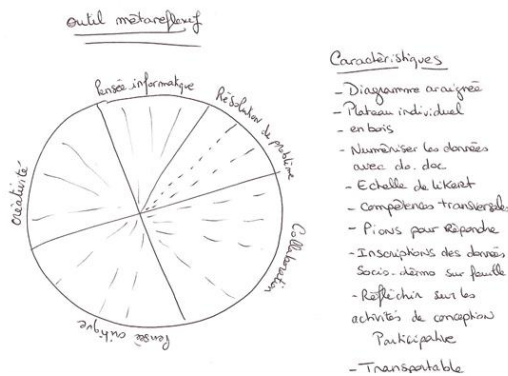 outil métaréflexif
Pensée informatique
Résolution de problème
Collaboration
Pensée critique
Créativité
Caractéristiques
- Diagramme araignée
- Plateau individuel
- en bois
- Numériser les données
avec do.doc
- Echelle de Likert
- Compétences transversales
- Pions pour répondre
- Inscriptions des données
Socio-démo sur feuille
- Réfléchir sur les
activités de conception
Participative
- Transportable